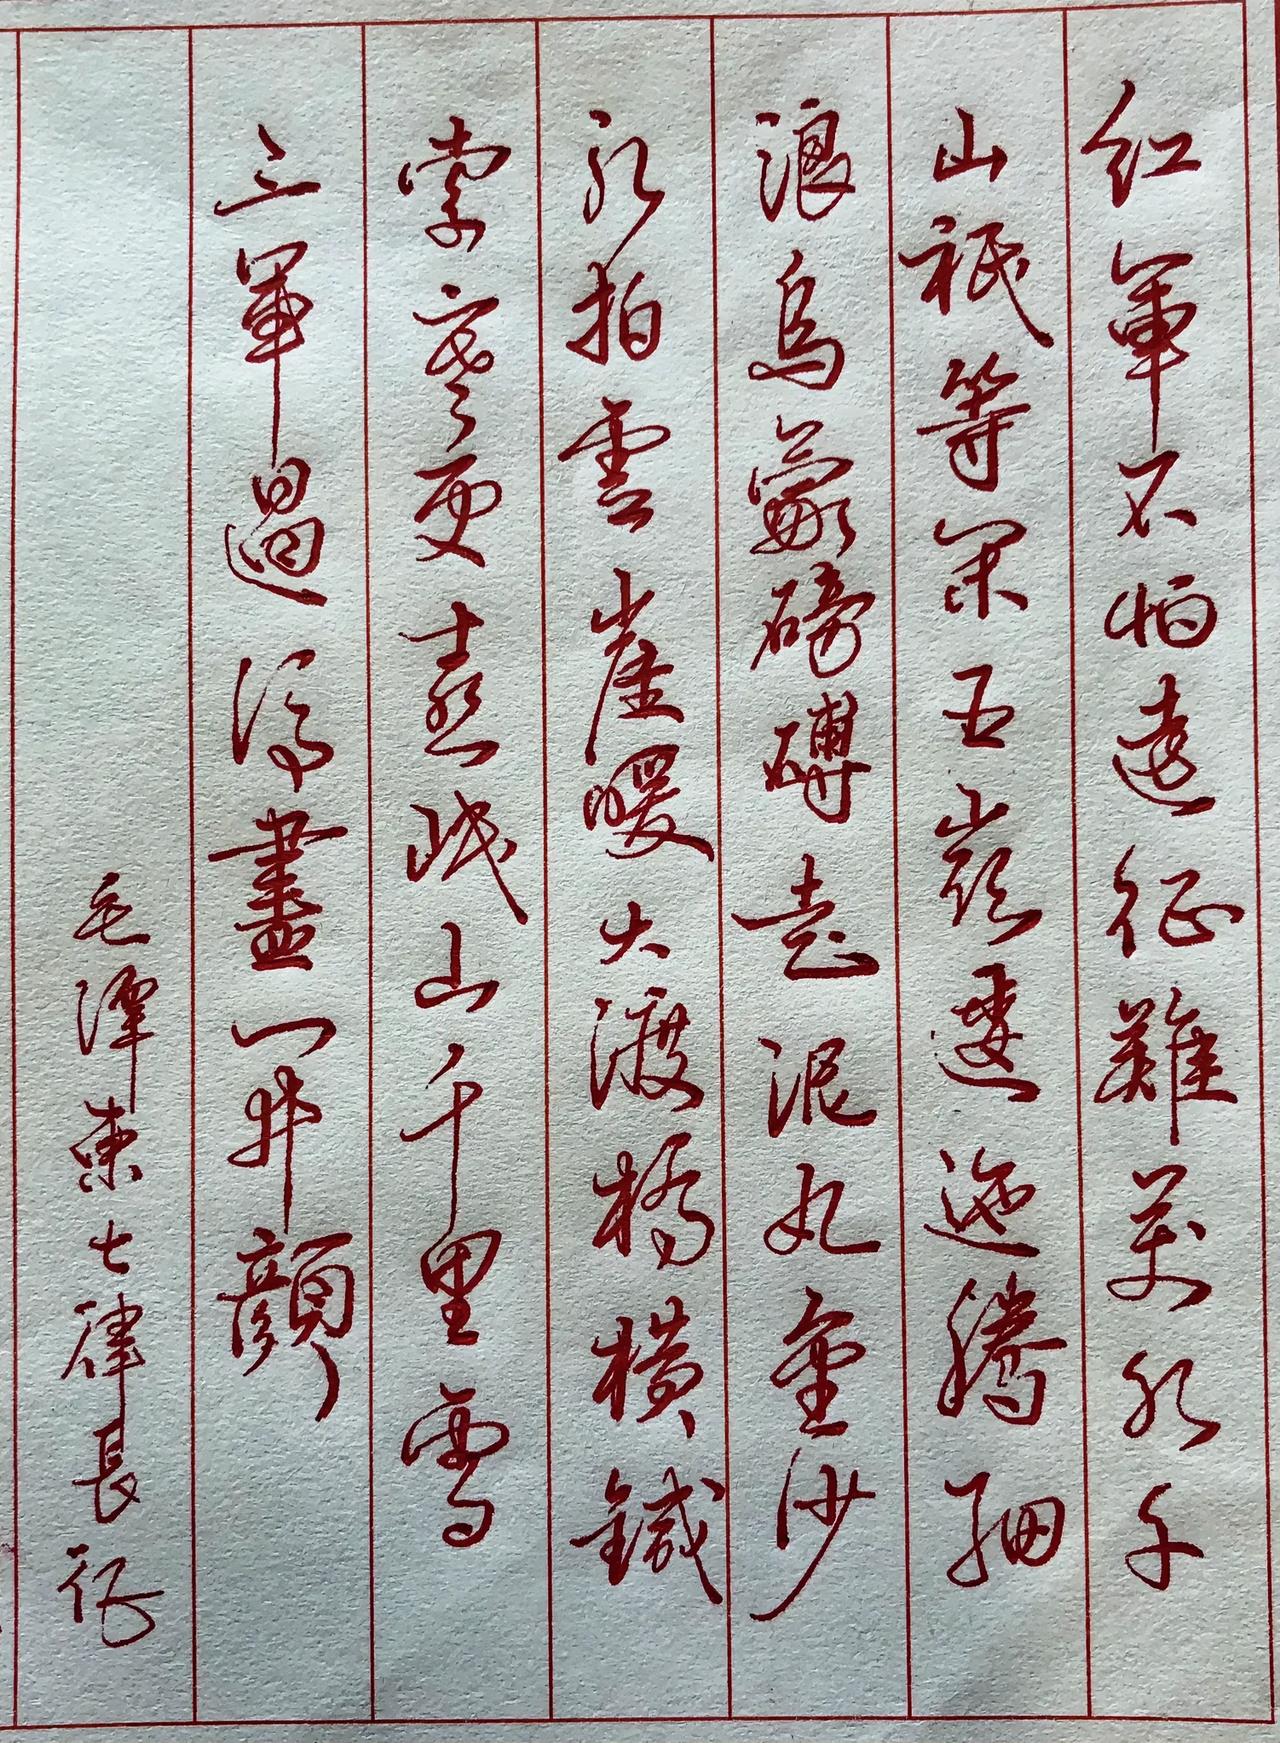 紅軍不怕遠征難萬水千
山祇等閑五嶺逶迤騰細
浪烏蒙磅礴走泥丸金沙
水拍雲崖暖大渡橋橫鐵
索寒更喜岷山千里雪
三軍過後盡開顏
毛澤東七律長征